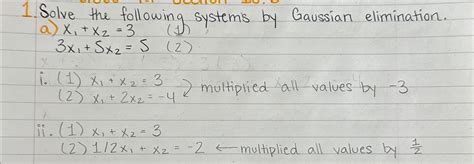 1. Solve the following systems by Gaussian elimination.
a) x₁ + x₂ = 3 (1)
3x₁ + 5x₂ = 5 (2)
i. (1) x₁ + x₂ = 3
(2) x₁ + 2x₂ = -4
multiplied all values by -3
ii. (1) x₁ + x₂ = 3
(2) 1/2x₁ + x₂ = -2 ← multiplied all values by 1/2